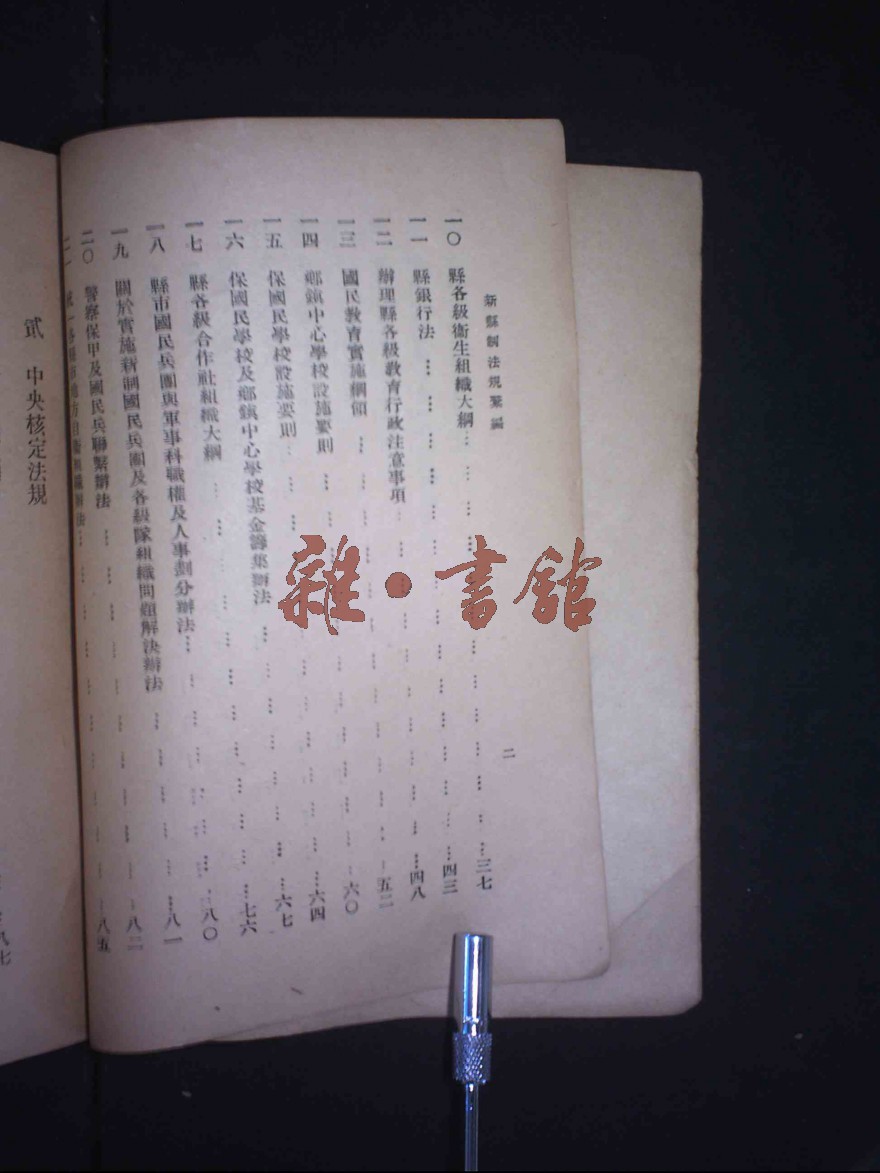 新縣制法規彙編
二
一〇 縣各級衞生組織大綱 三七
一一 縣銀行法 四三
一二 辦理縣各級教育行政注意事項 四八
一三 國民教育實施綱領 五二
一四 鄉鎮中心學校設施要則 六〇
一五 保國民學校設施要則 六四
一六 保國民學校及鄉鎮中心學校基金籌集辦法 六七
一七 縣各級合作社組織大綱 七六
一八 縣市國民兵團與軍事科職權及人事劃分辦法 八〇
一九 關於實施新制國民兵團及各級隊組織問題解決辦法 八一
二〇 警察保甲及國民兵聯繫辦法 八二
二一 八五
貳 中央核定法規
雜·書館